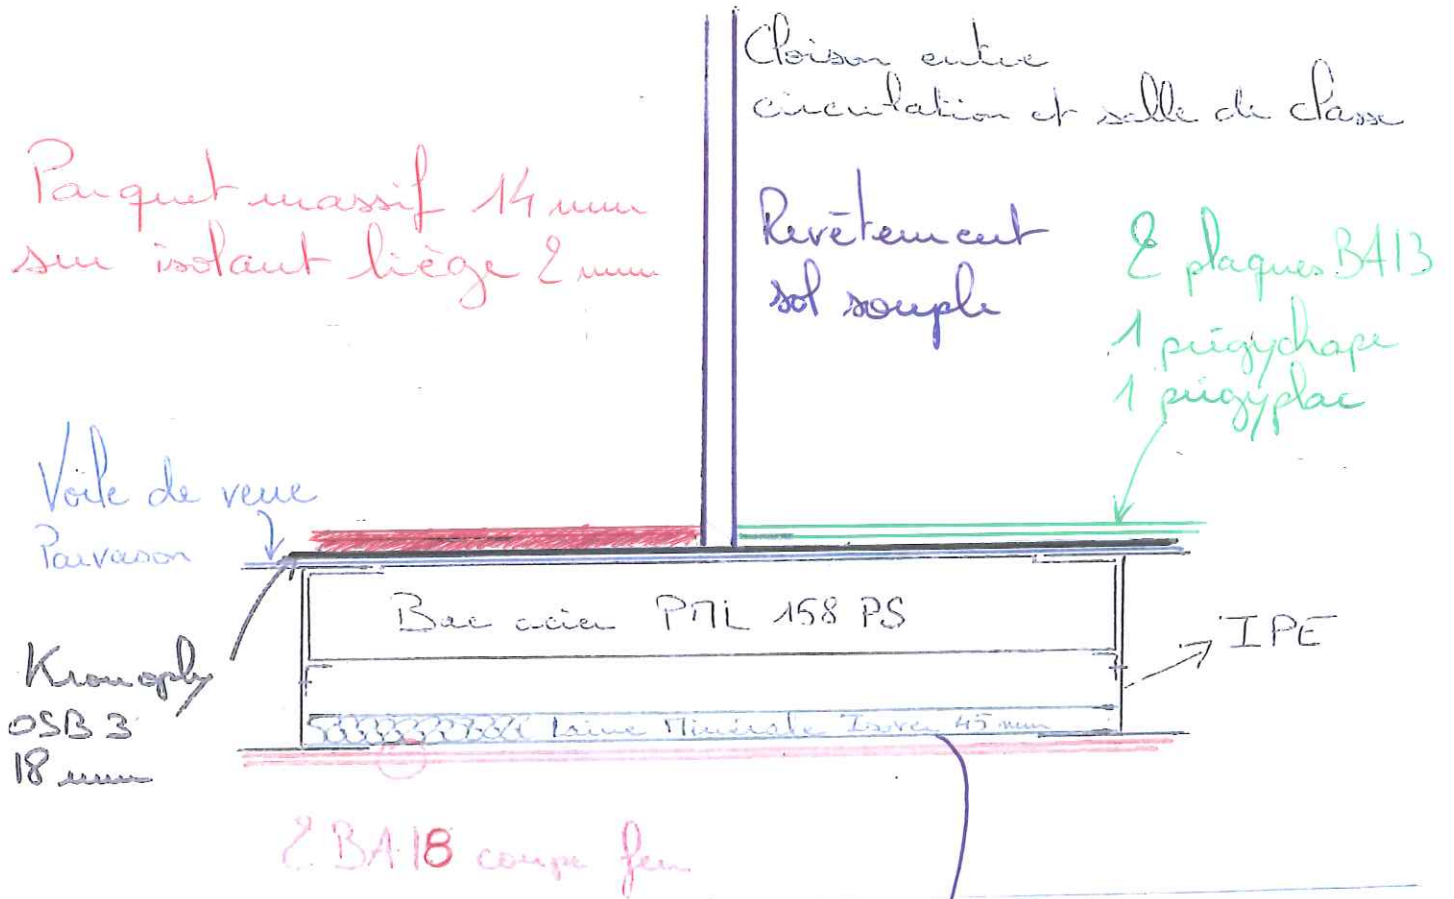 Cloison entre
circulation et salle de classe
Parquet massif 14 mm
sur isolant liège 2 mm
Revêtement
sol souple
2 plaques BA13
1 prégychape
1 prégyplac
Voile de verre
Parvason
Bac acier PML 158 PS
IPE
Kronoply
OSB 3
18 mm
Laine Minérale Isover 45 mm
2 BA 18 coupe feu